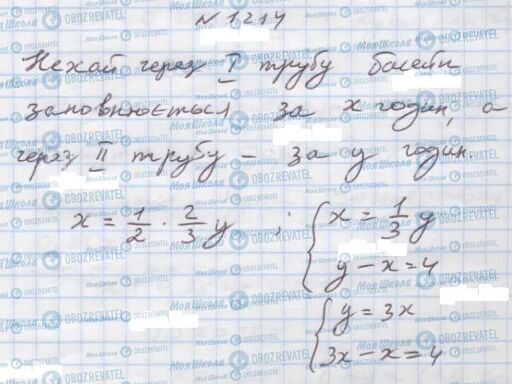 № 1214
Нехай через I трубу басейн
заповнюється за x годин, а
через II трубу – за y годин.
x = 1/2 · 2/3 y ; { x = 1/3 y
y – x = 4
{ y = 3x
3x – x = 4